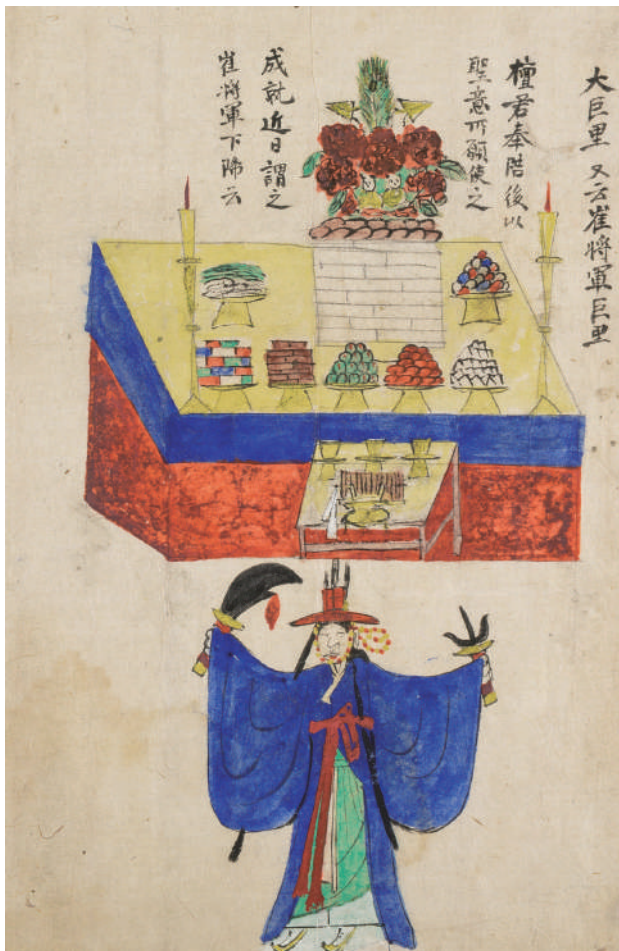 大巨里 又云崔將軍巨里
檀君奉陪後以
聖意所願使之
成就近日謂之
崔將軍下降云